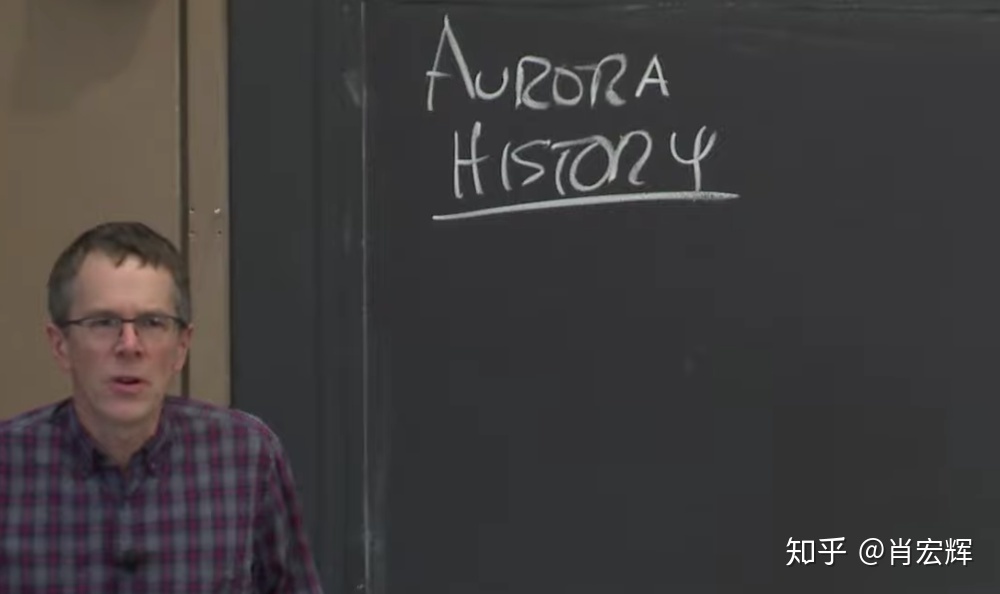 AURORA
HISTORY
知乎 @肖宏辉